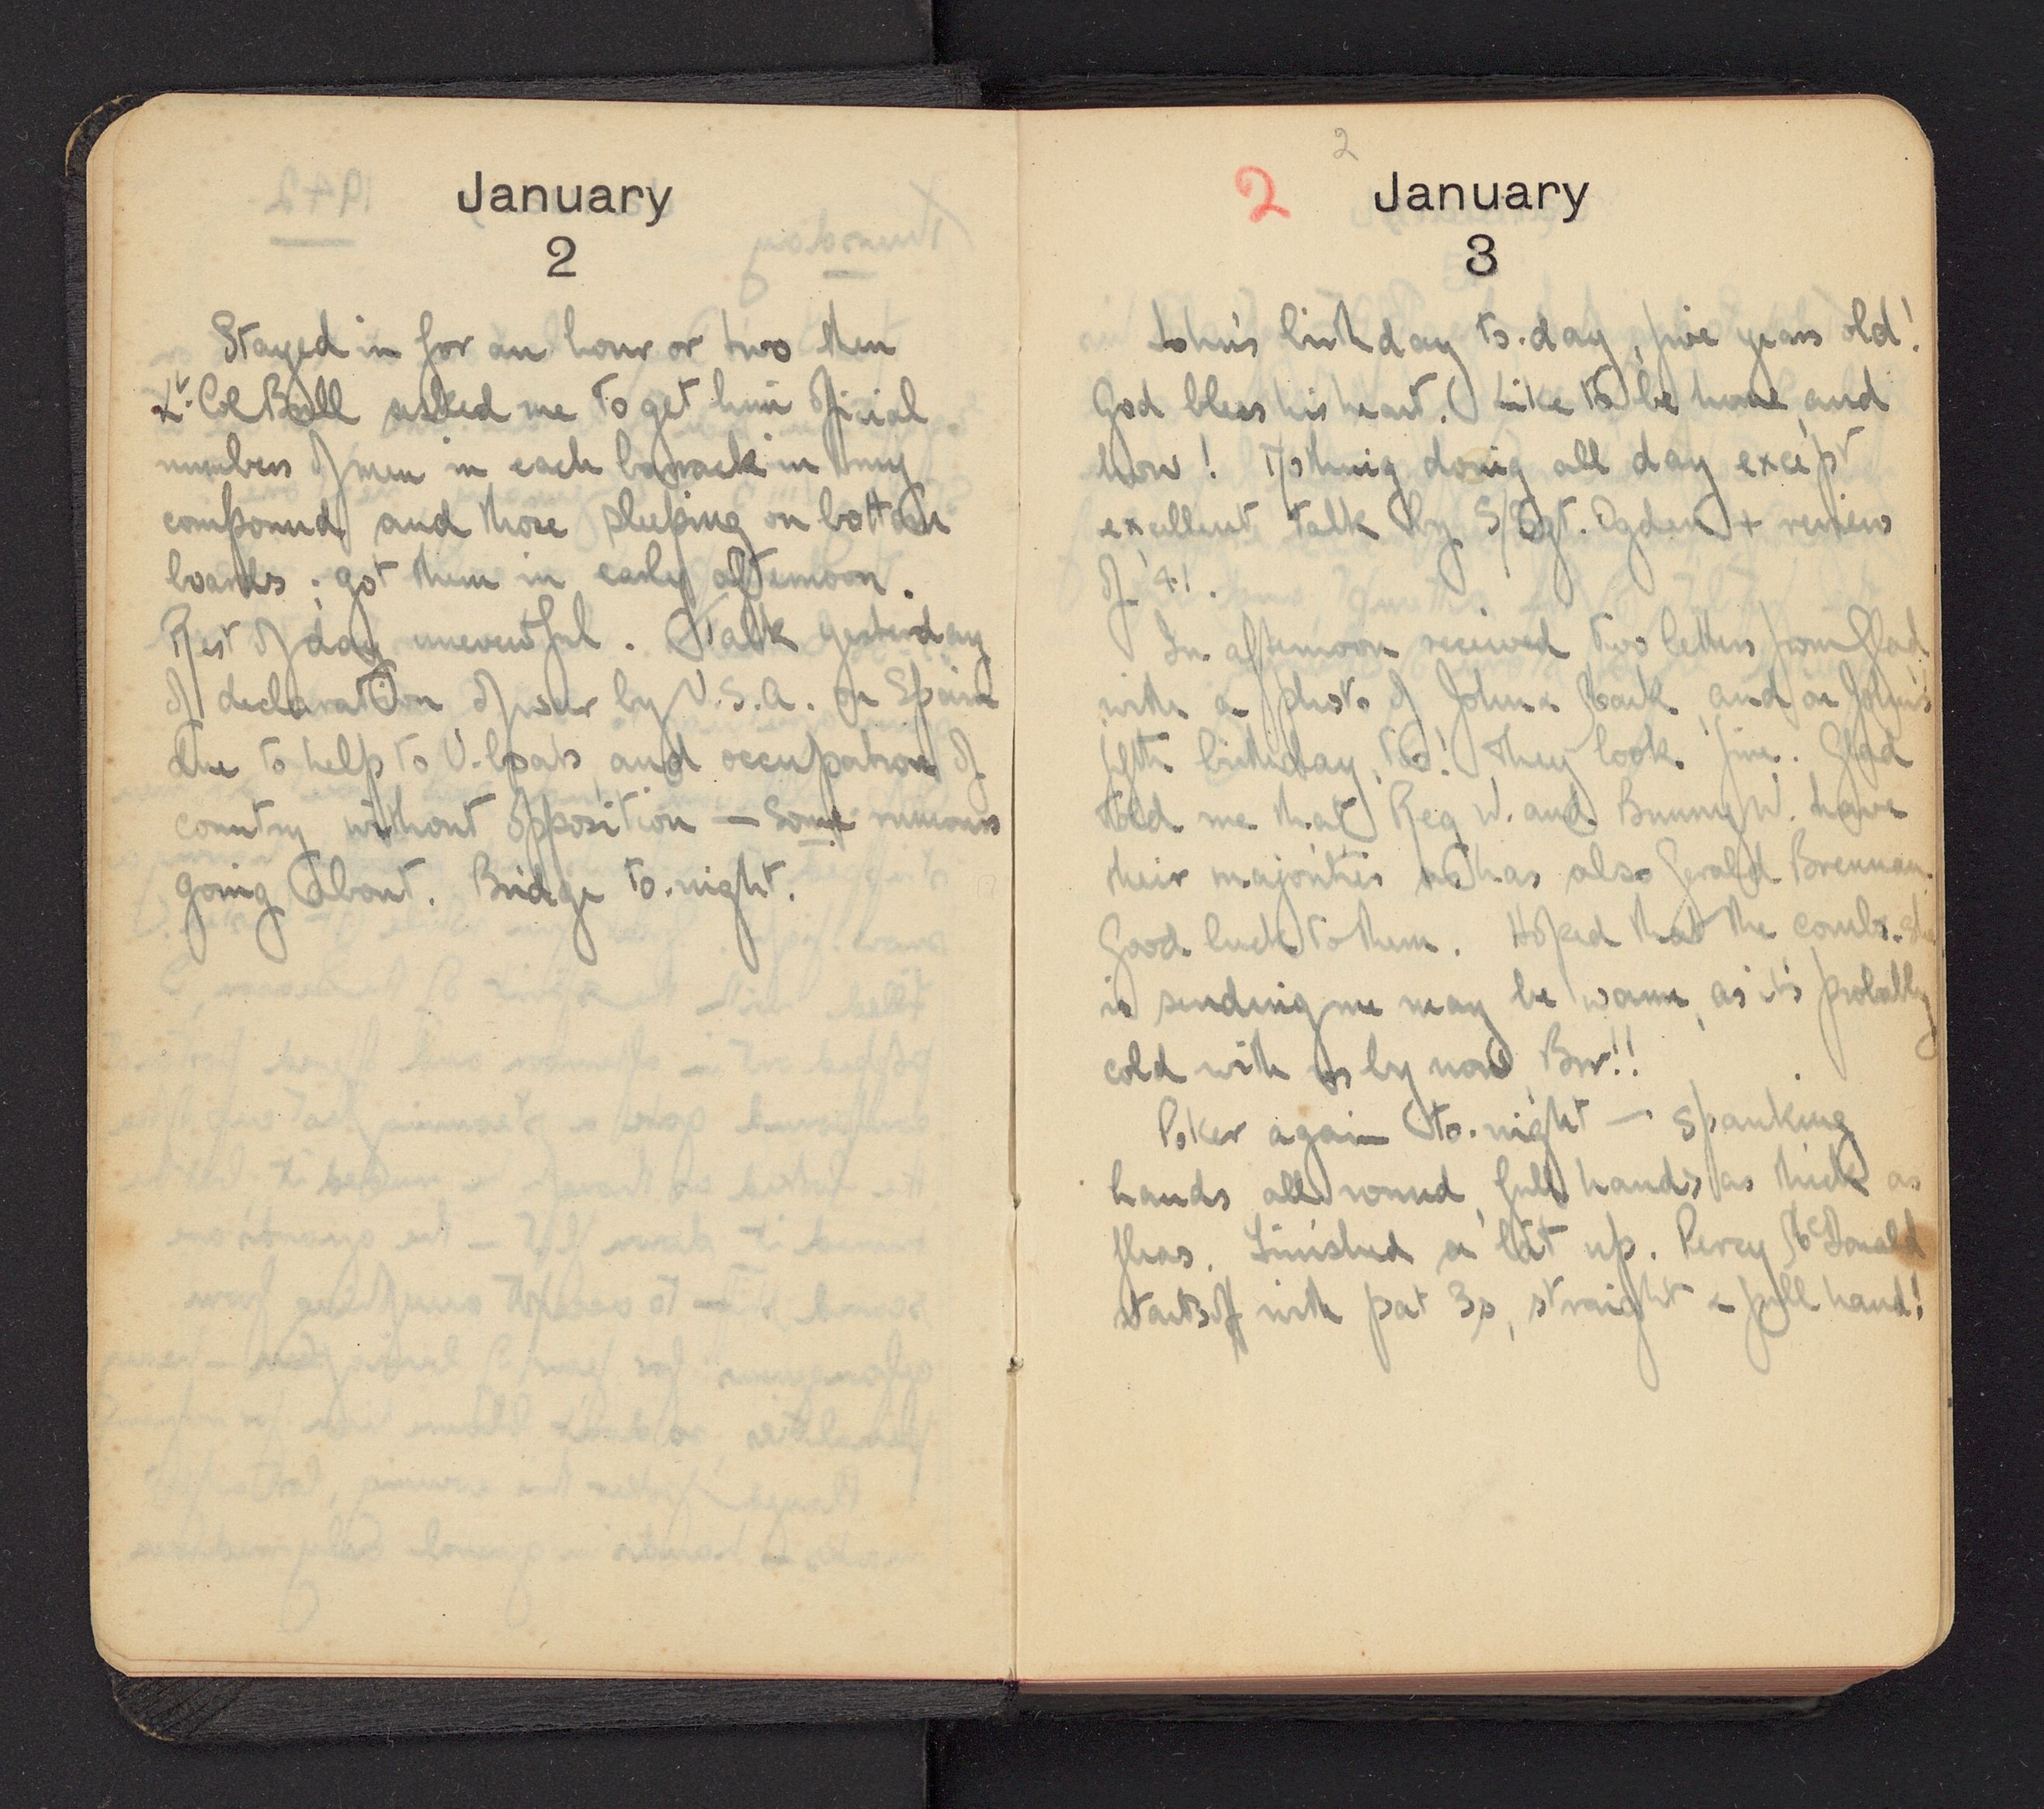 January
2
Stayed in for an hour or two then
Lt. Col Bull asked me to get him official
numbers of men in each barrack in my
compound and those sleeping on bottom
boards; got them in early afternoon.
Rest of day uneventful. Talk yesterday
of declaration of war by U.S.A. on Spain
due to help to U.boats, and occupation of
country without opposition — Some rumours
going about. Bridge to.night.
2
2
January
3
John's birthday to.day, five years old!
God bless his heart. Like to be home, and
how! Nothing doing all day except
excellent talk by S/Sgt. Ogden + review
of '41.
In afternoon received two letters from Glad
with a photo of John & Jack, and on John's
fifth birthday, too! They look fine. Glad
told me that Reg W. and Bunny W. have
their majorities as has also Gerald Brennan.
Good luck to them. Hoped that the combs. she
is sending me may be warm, as it's probably
cold with us by now, Brr!!
Poker again to.night — spanking
hands all round, full hands as thick as
fleas. Finished a bit up. Percy McDonald
starts off with pat 3s, straight & full hand!